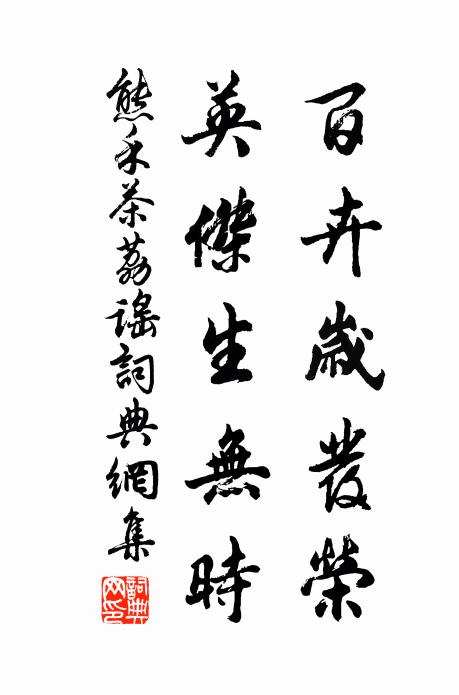 百卉歲發榮
英傑生無時
熊禾茶荔謠詞典網集
詞典网印